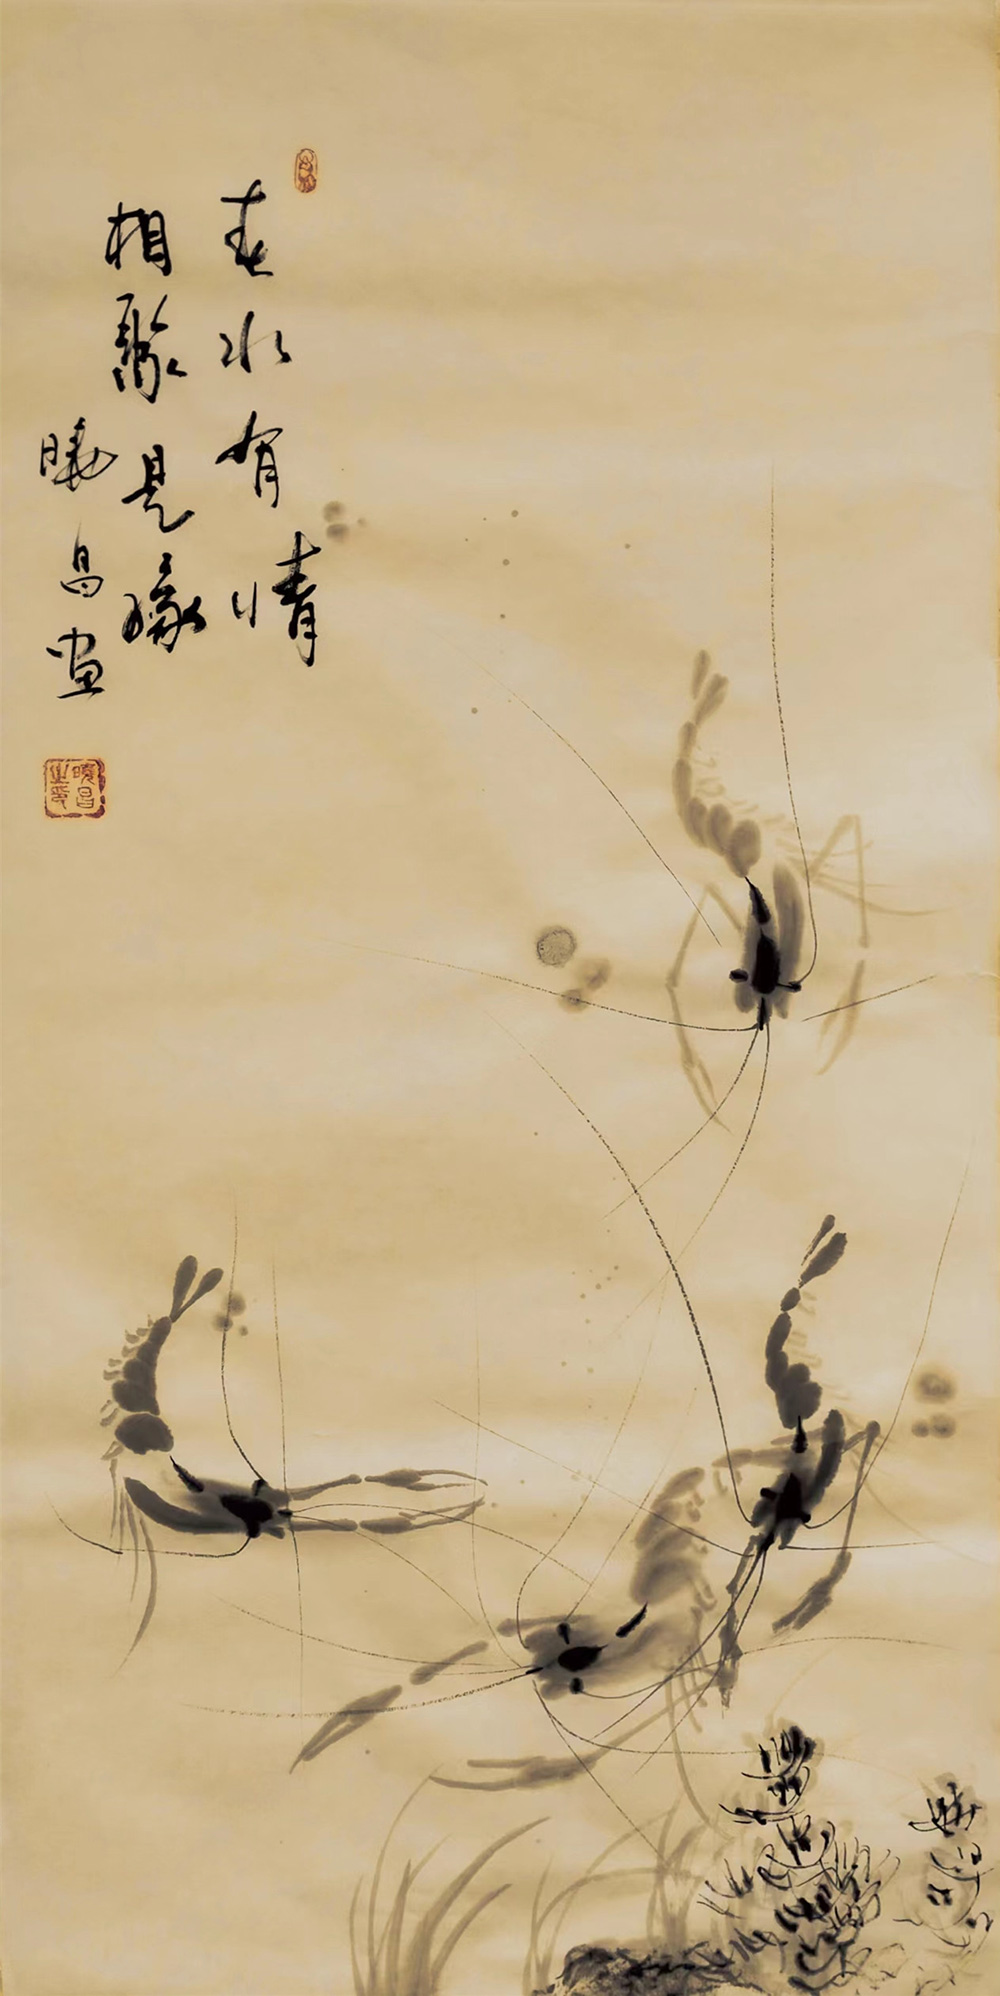 春水有情
相聚是缘
晓昌画
曉昌之印